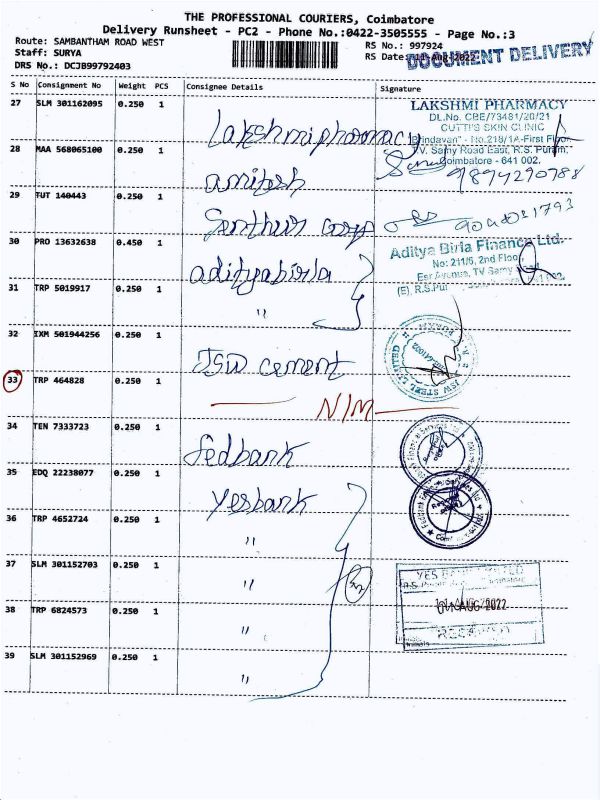 THE PROFESSIONAL COURIERS, Coimbatore
Delivery Runsheet - PC2 - Phone No.:0422-3505555 - Page No.:3
Route: SAMBANTHAM ROAD WEST
RS No.: 997924
DOCUMENT DELIVERY
Staff: SURYA
RS Date: 11-Aug-2022
DRS No.: DCJB99792403
S No Consignment No Weight PCS Consignee Details Signature
27 SLM 301162095 0.250 1 Lakshmipharmacy
LAKSHMI PHARMACY
DL.No. CBE/73481/20/21
CUTTI'S SKIN CLINIC
"Brindavan" - No.218/1A-First Floor
T.V. Samy Road East, R.S. Puram,
Coimbatore - 641 002.
28 MAA 568065100 0.250 1 amitesh
9894290788
29 TUT 140443 0.250 1 Senthur corp
30 PRO 13632638 0.450 1 adityabirla
Aditya Birla Finance Ltd.
No: 211/5, 2nd Floor
Esr Avenue, TV Samy Road
(E), R.S.Pur
31 TRP 5019917 0.250 1 "
32 IXM 501944256 0.250 1 JSW cement
JSW STEEL
33 TRP 464828 0.250 1 N/M
34 TEN 7333723 0.250 1 Fedbank
35 EDQ 22238077 0.250 1 Yesbank
Fedbank Financial Services Ltd
36 TRP 4652724 0.250 1 "
37 SLM 301152703 0.250 1 "
YES BANK LIMITED
AUG 2022
RECEIVED
38 TRP 6824573 0.250 1 "
39 SLM 301152969 0.250 1 "